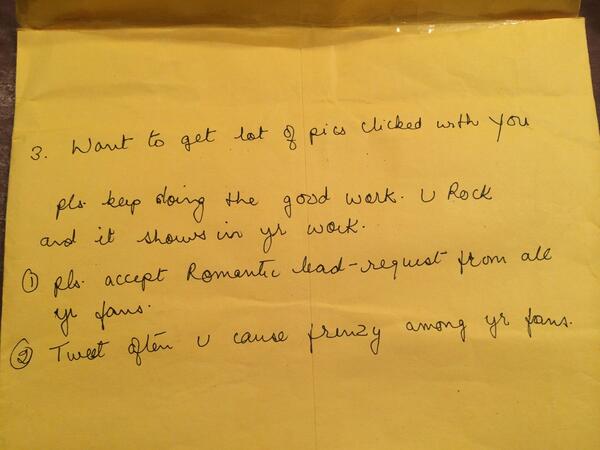 3. Want to get lot of pics clicked with You
pls. keep doing the good work. U Rock
and it shows in yr work.
① pls. accept Romantic lead-request from all
yr fans.
② Tweet often U cause frenzy among yr fans.